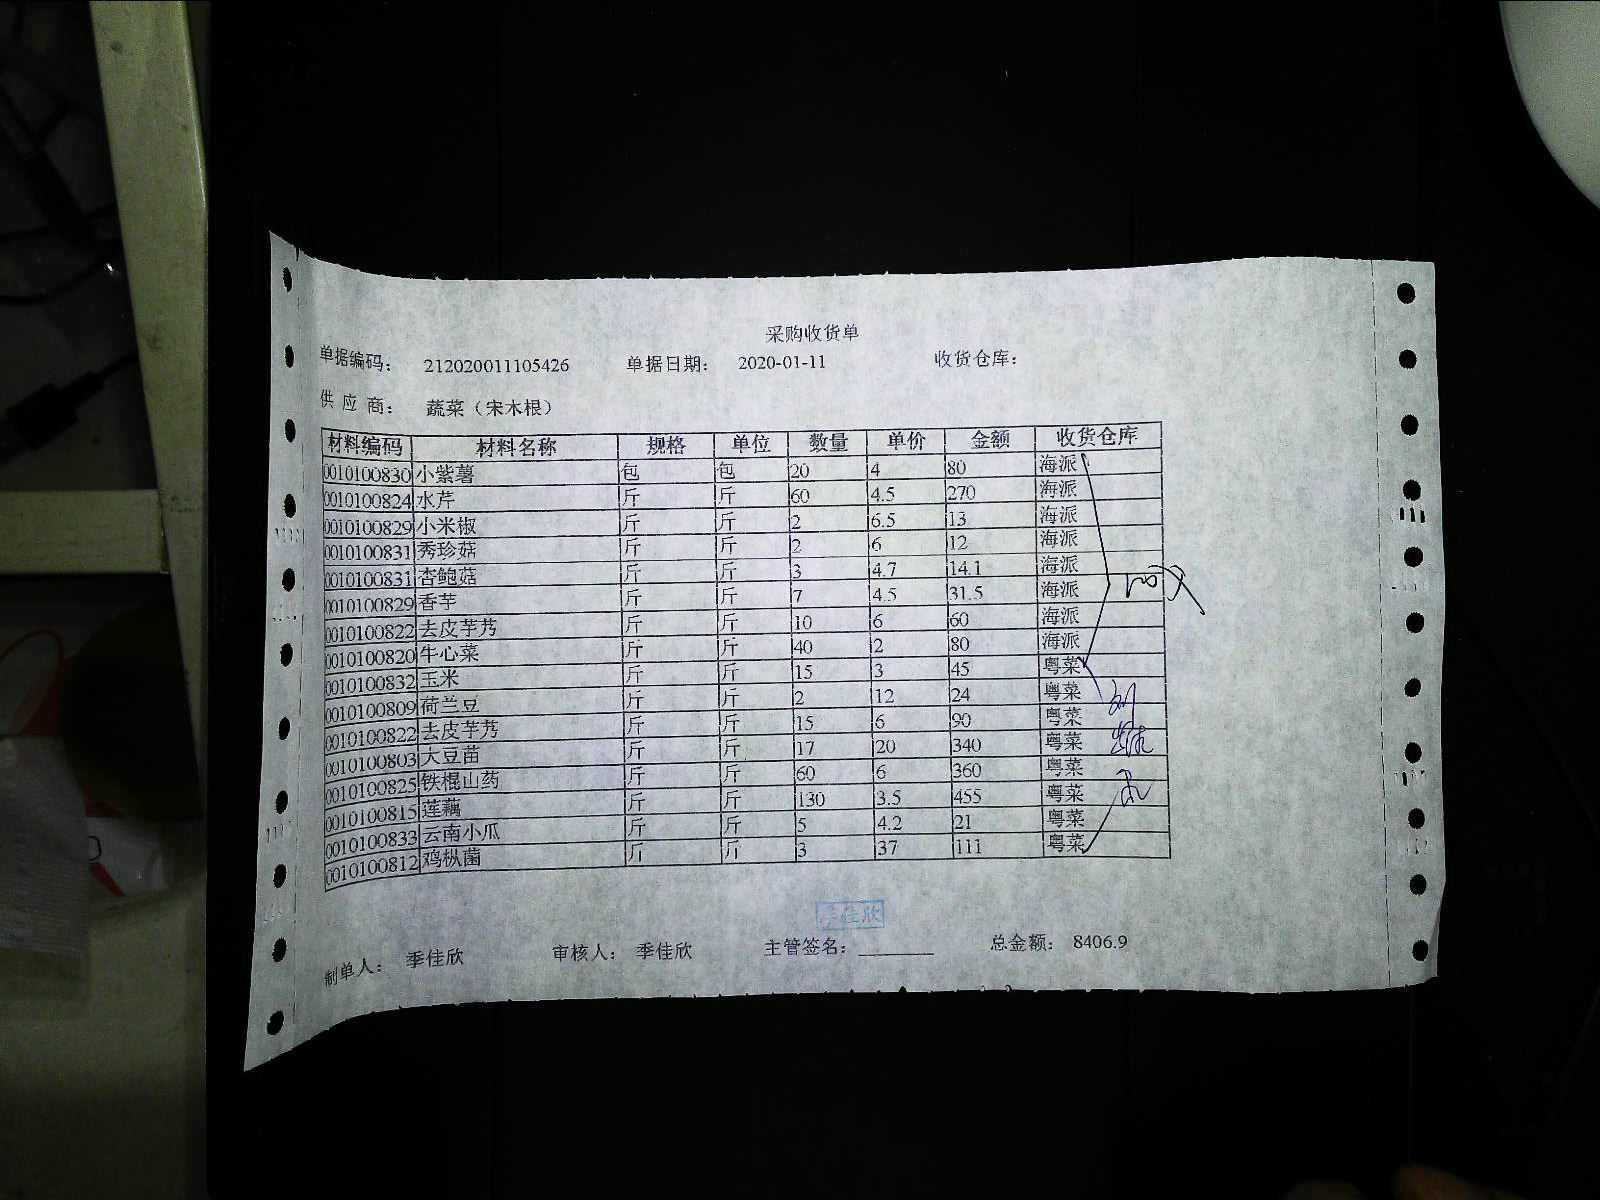 采购收货单
单据编码： 212020011105426 单据日期： 2020-01-11 收货仓库：
供 应 商： 蔬菜（宋木根）
材料编码 材料名称 规格 单位 数量 单价 金额 收货仓库
0010100830 小紫薯 包 包 20 4 80 海派
0010100824 水芹 斤 斤 60 4.5 270 海派
0010100829 小米椒 斤 斤 2 6.5 13 海派
0010100831 秀珍菇 斤 斤 2 6 12 海派
0010100831 杏鲍菇 斤 斤 3 4.7 14.1 海派
0010100829 香芋 斤 斤 7 4.5 31.5 海派
0010100822 去皮芋艿 斤 斤 10 6 60 海派
0010100820 牛心菜 斤 斤 40 2 80 海派
0010100832 玉米 斤 斤 15 3 45 粤菜
0010100809 荷兰豆 斤 斤 2 12 24 粤菜
0010100822 去皮芋艿 斤 斤 15 6 90 粤菜
0010100803 大豆苗 斤 斤 17 20 340 粤菜
0010100825 铁棍山药 斤 斤 60 6 360 粤菜
0010100815 莲藕 斤 斤 130 3.5 455 粤菜
0010100833 云南小瓜 斤 斤 5 4.2 21 粤菜
0010100812 鸡枞菌 斤 斤 3 37 111 粤菜
季佳欣
制单人： 季佳欣 审核人： 季佳欣 主管签名： 总金额： 8406.9